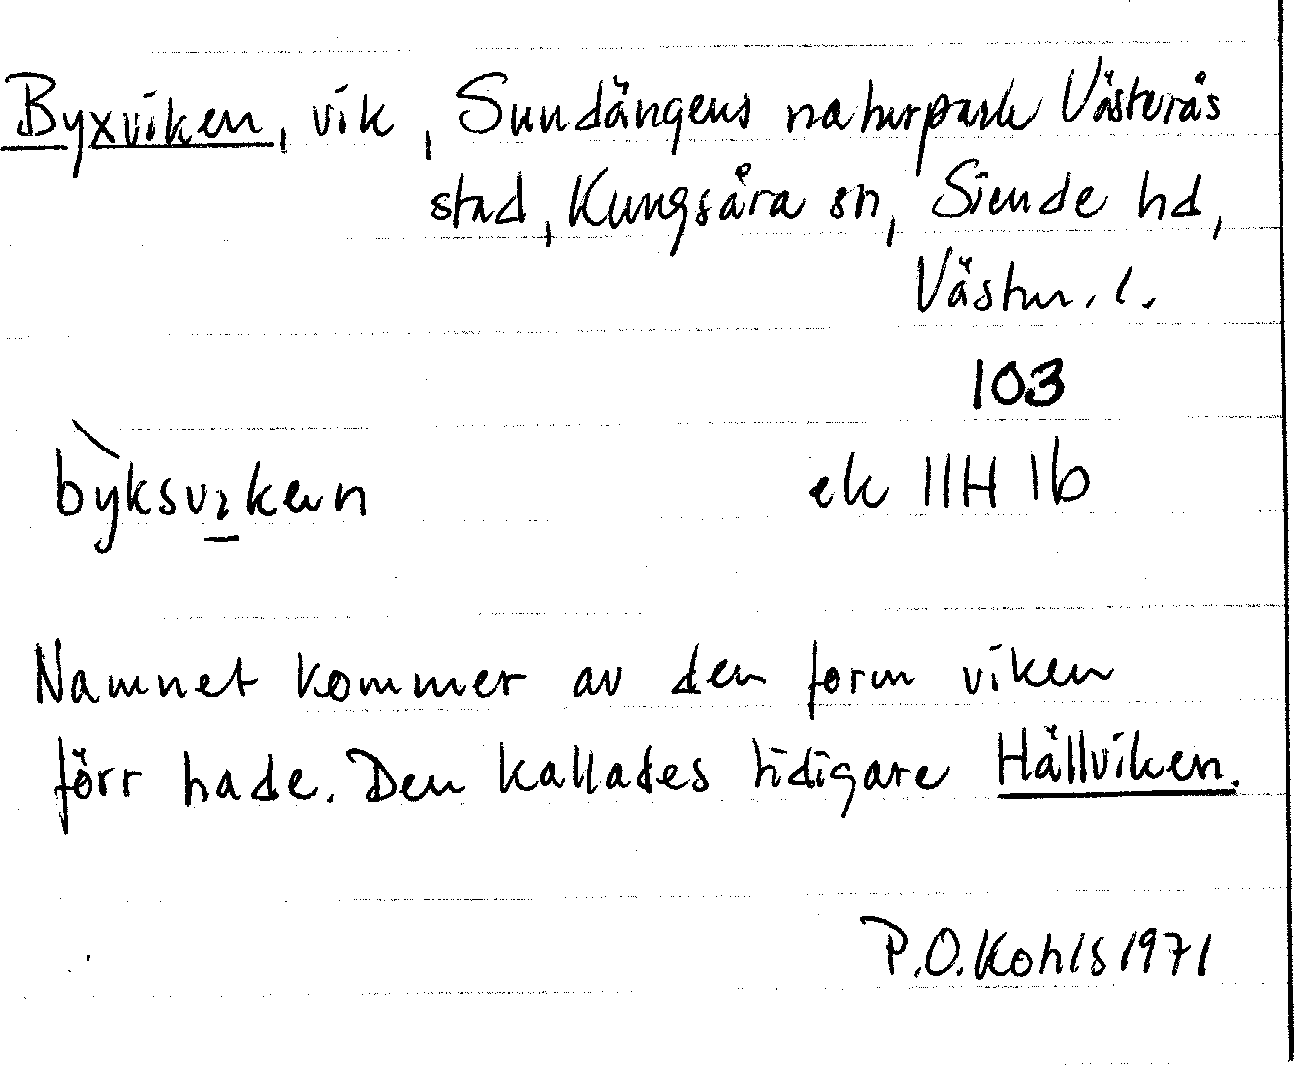 Byxviken, vik, Sundängens naturpark Västerås
stad, Kungsåra sn, Siende hd,
Västm. l.
103
ek 11H 1b
Namnet kommer av den form viken
förr hade. Den kallades tidigare Hällviken.
P.O. Kohls 1971